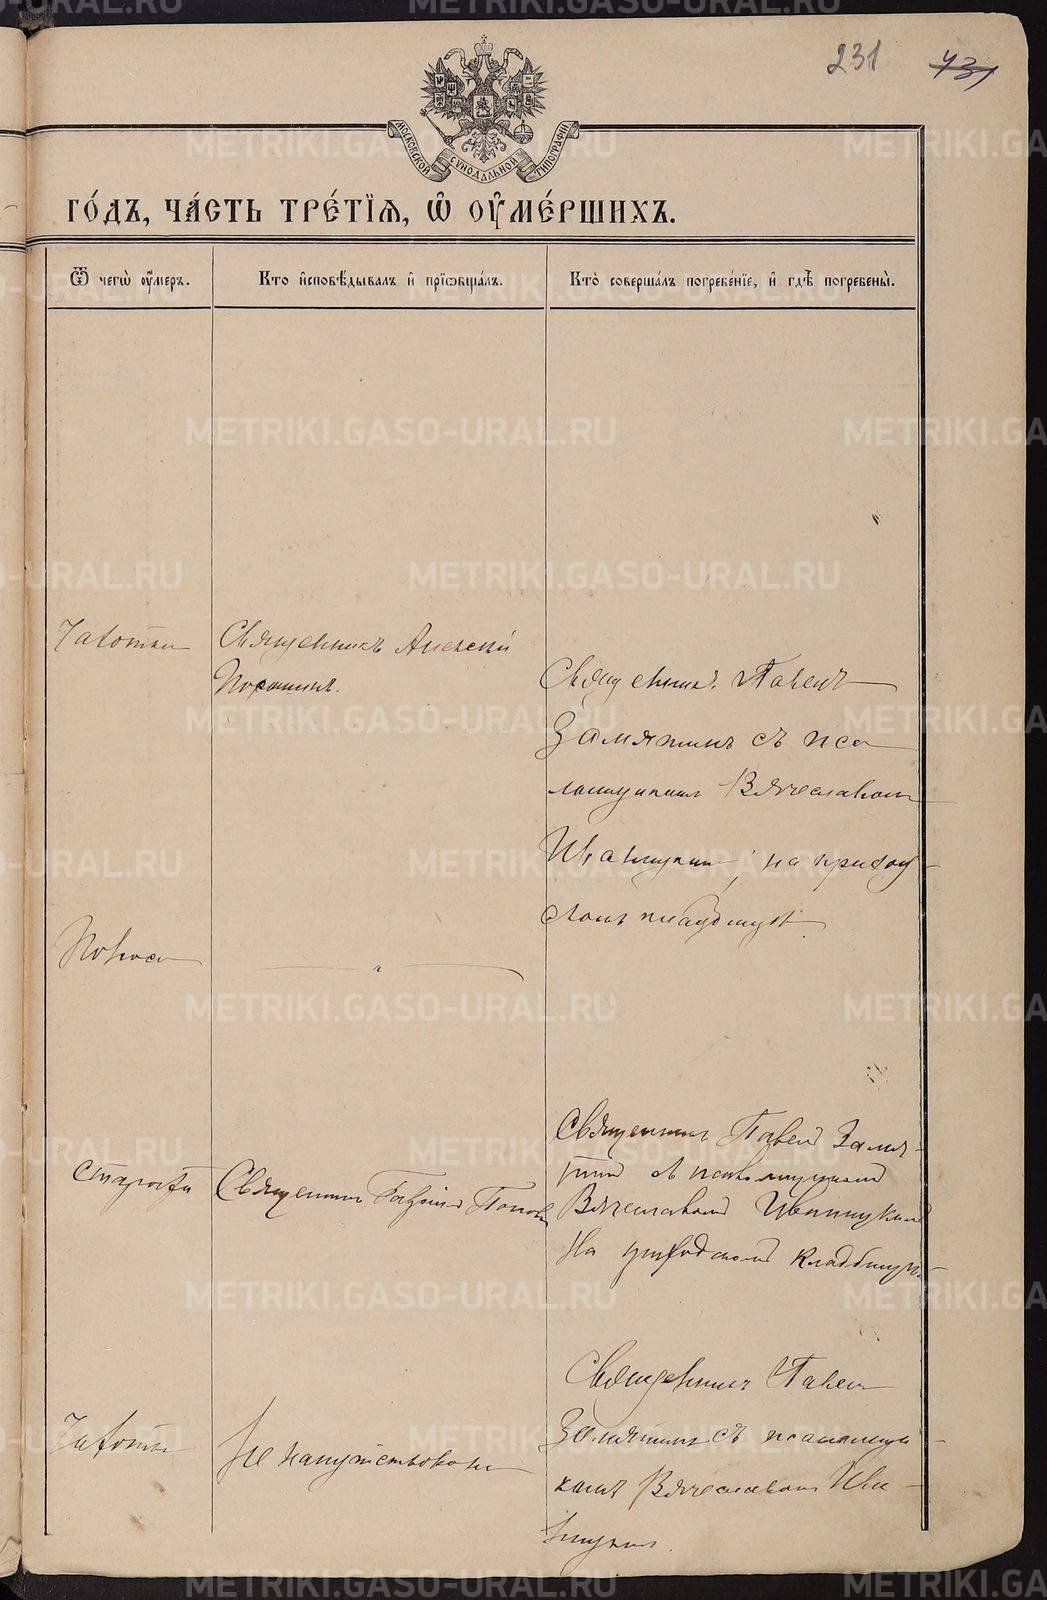 231 431
МОСКОВСКОЙ СѴНОДАЛЬНОЙ ТИПОГРАФІИ
ГО́ДЪ, ЧА́СТЬ ТРЕ́ТЇѦ, Ѡ҆ ОУ҆МЕ́РШИХЪ.
Ѿ чегѡ̀ оу҆́меръ.
Кто̀ и҆сповѣ́дывалъ и҆ прїѡбща́лъ.
Кто̀ соверша́лъ погребе́нїе, и҆ гдѣ̀ погребены̀.
Чахотки
Священникъ Алексій
Порошинъ.
Священникъ Павелъ
Замятинъ съ пса
ломщикомъ Вячеславомъ
на приход
скомъ кладбищѣ.
Поноса
"
Старости
Священникъ Гавріилъ Поповъ
Священникъ Павелъ Замя-
тинъ съ псаломщикомъ
Вячеславомъ
На приходскомъ кладбищѣ
Чахотки
Не напутствованъ
Священникъ Павелъ
Замятинъ съ псаломщи
комъ Вячеславомъ
METRIKI.GASO-URAL.RU